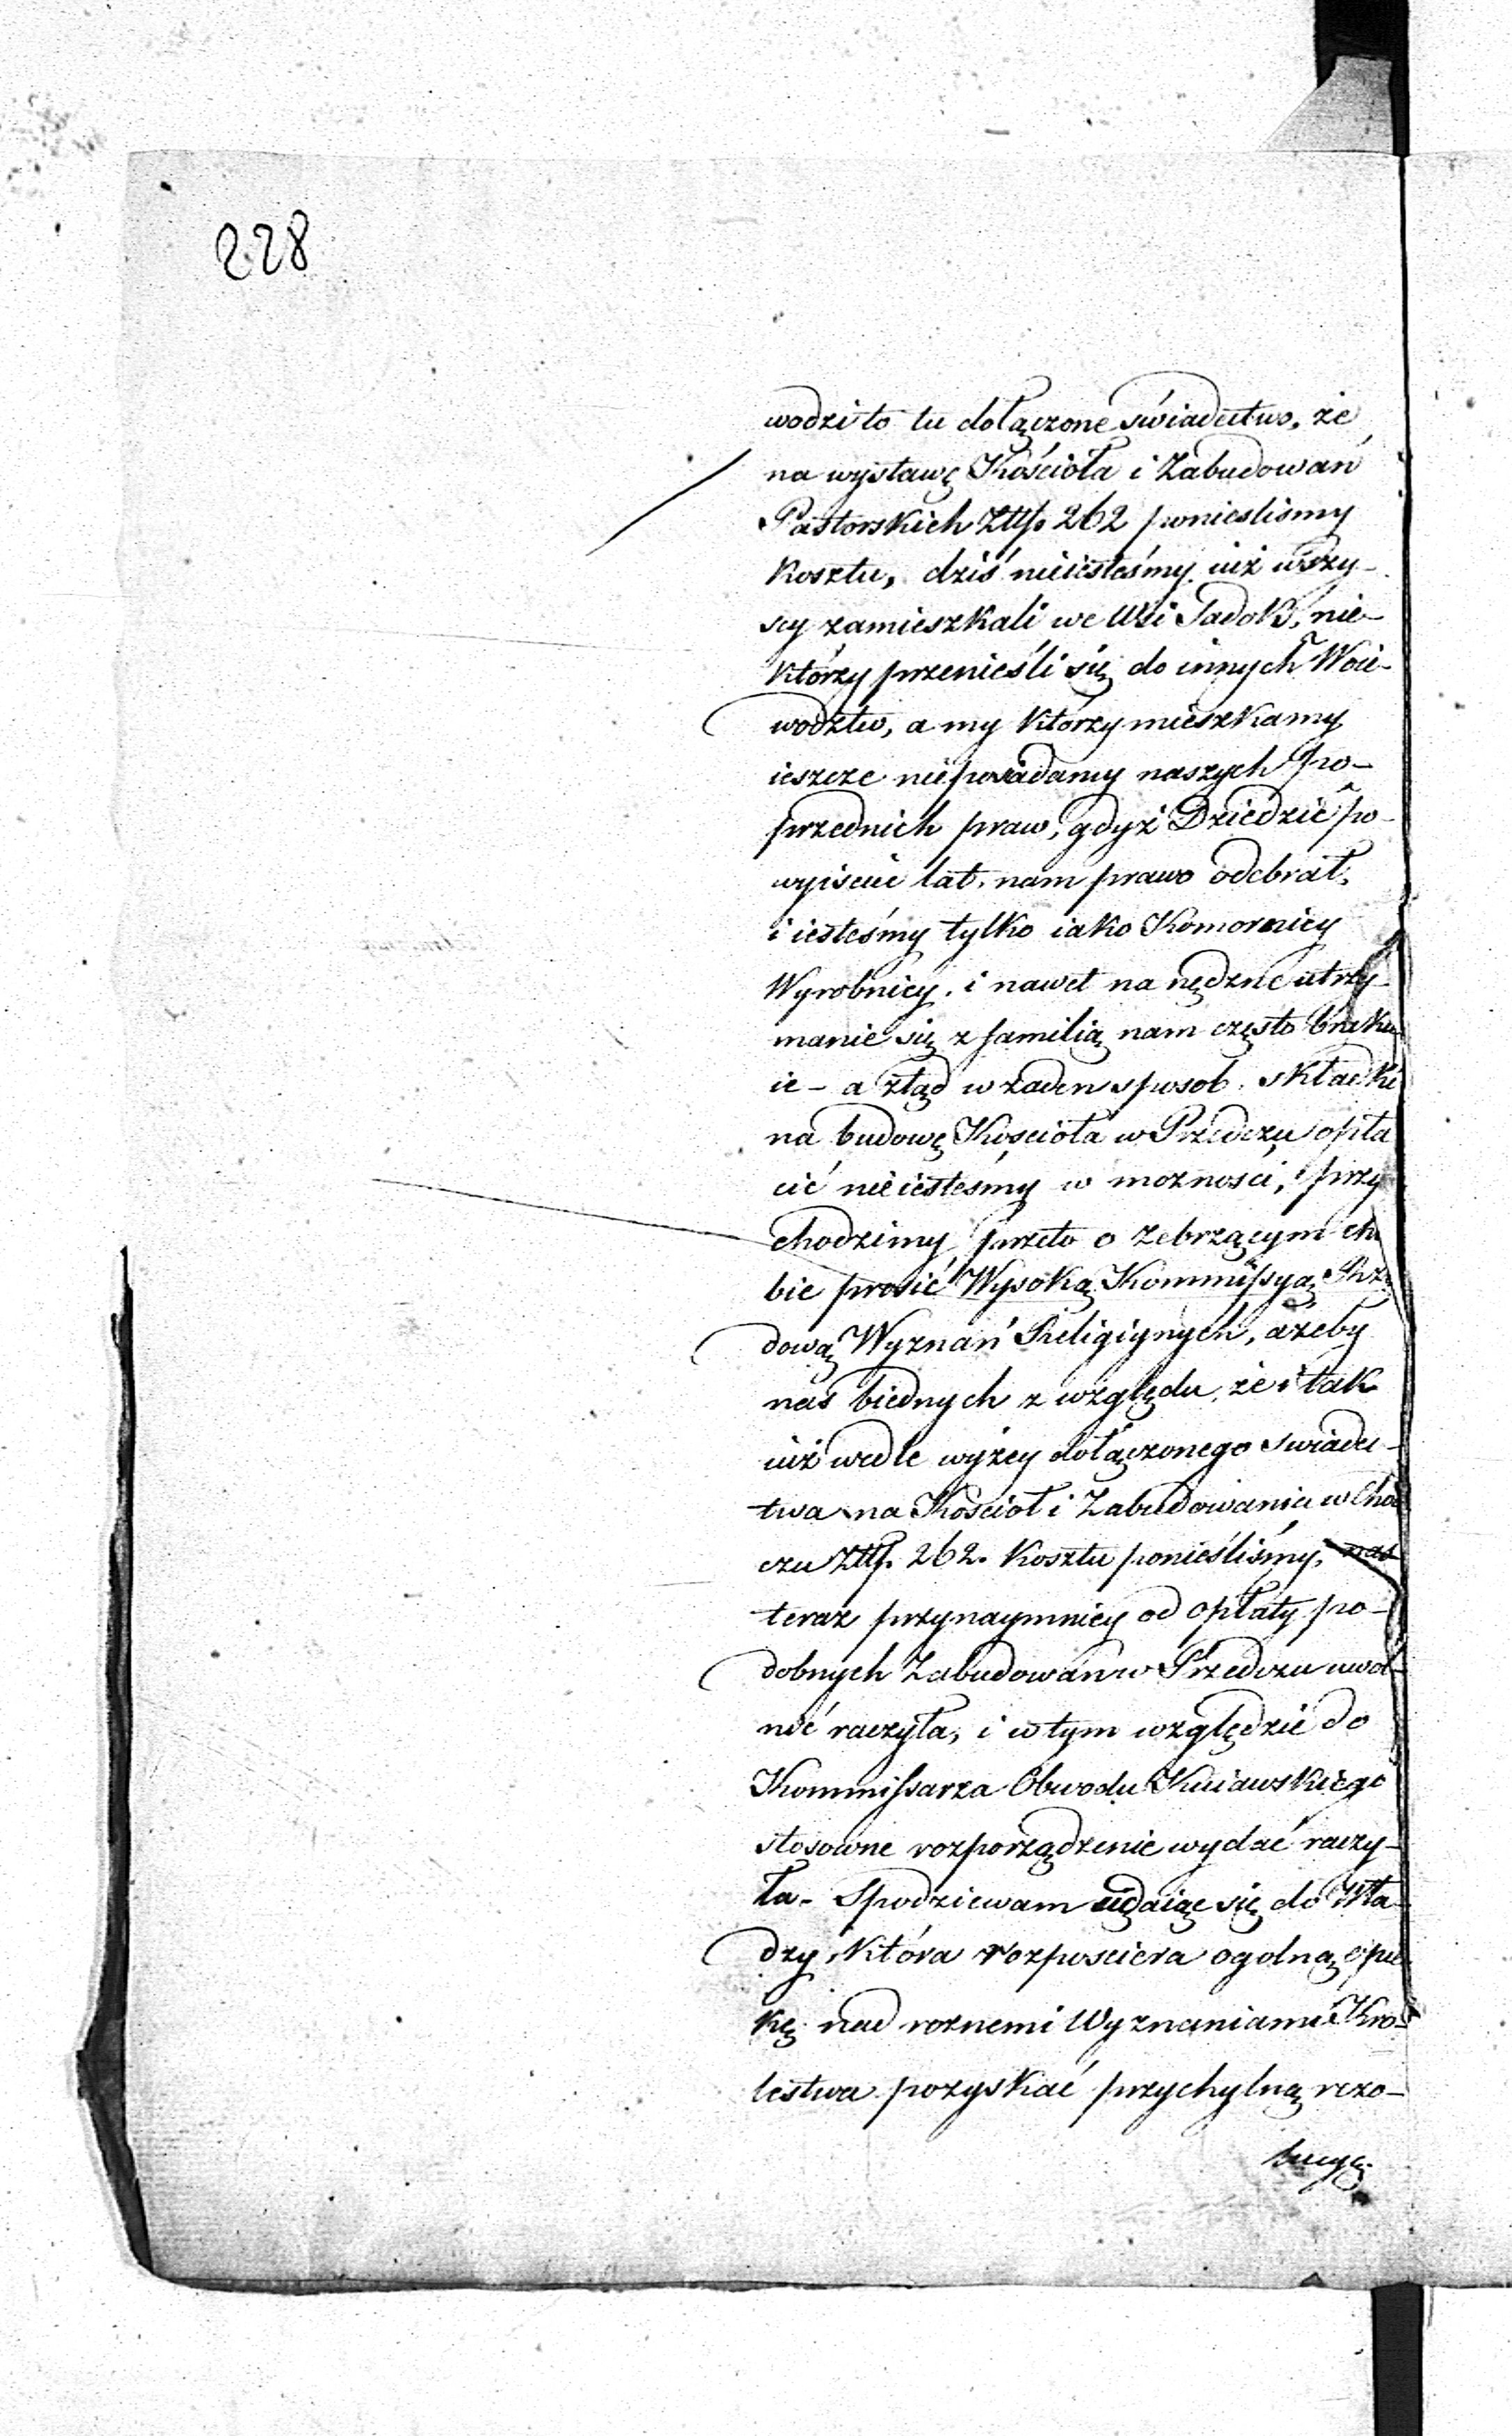 228
wodzi to tu dołączone świadectwo, że
na wystawę Kościoła i Zabudowań
Pastorskich Zttp. 262 ponieslismy
kosztu, dziś nieiesteśmy iuż wszy-
scy zamieszkali we Wsi Sadok, nie-
którzy przenieśli się do innych Woie-
wodztw, a my którzy mieszkamy
ieszcze nieposiadamy naszych po-
przednich praw, gdyż Dziedzic po-
wyiscie lat, nam prawo odebrał,
i iesteśmy tylko iako Komornicy
Wyrobnicy, i nawet na nędzne utrzy-
manie się z familią nam często braku
ie - a ztąd w żaden sposob składki
na budowę Kościoła w Przedczu opła
cić nieiestesmy w moznosci, przy
chodzimy przeto o zebrzącym chle
bie prosić Wysoką Kommissyą Rzą
dową Wyznań Religiynych, ażeby
nas biednych z względu, że i tak
iuż wedle wyżey dołączonego swiadec-
twa na Kościoł i Zabudowania w Cho
czu Zttp. 262. Kosztu ponieśliśmy, nas
teraz przynaymniey od opłaty po-
dobnych Zabudowań w Przedczu uwol-
nić raczyła, i w tym względzie do
Kommissarza Obwodu Kuiawskiego
stosowne rozporządzenie wydać raczy-
ła - Spodziewam udaiąc się do Wła
dzy, która rozposciera ogolną opie
kę nad roznemi Wyznaniami Kro-
lestwa pozyskać przychylną rezo-
lucyą.